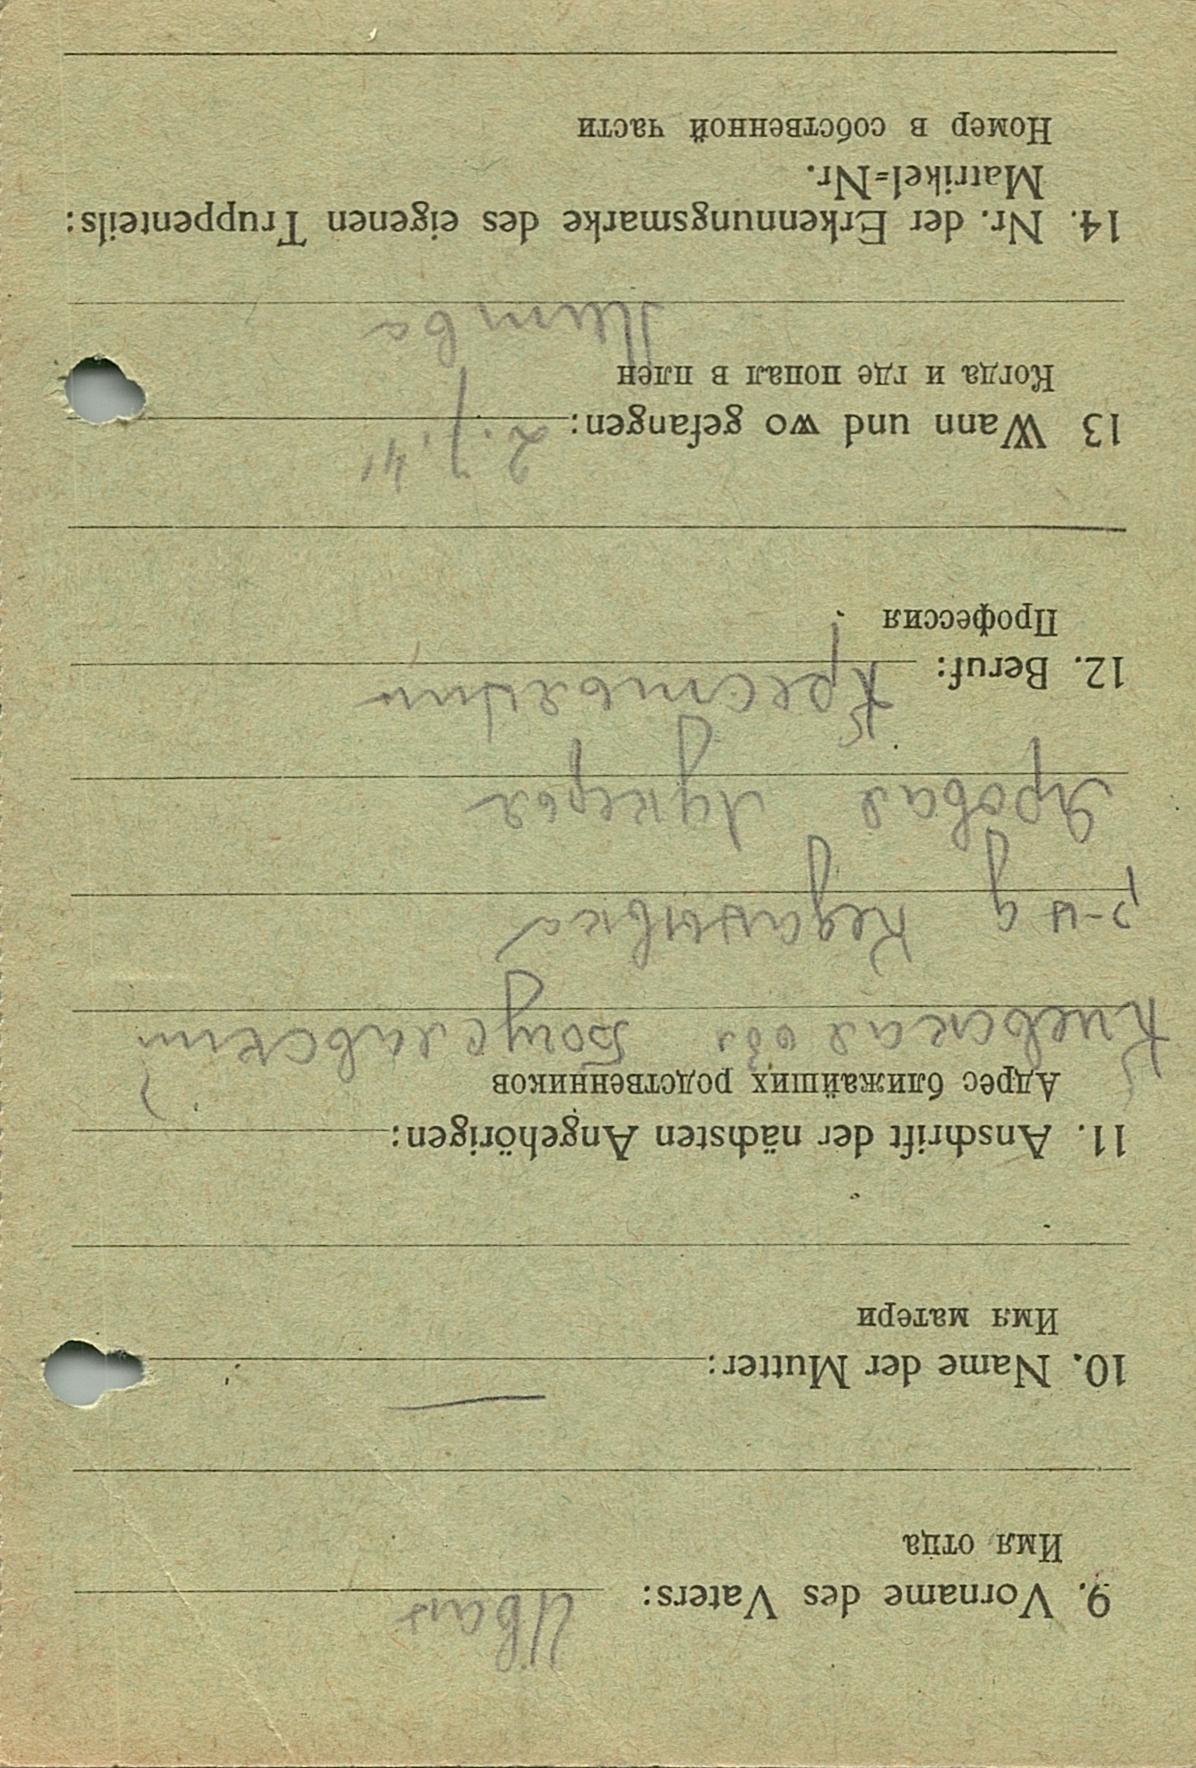 9. Vorname des Vaters: Иван
Имя отца
10. Name der Mutter: —
Имя матери
11. Anschrift der nächsten Angehörigen:
Адрес ближайших родственников
Киевская обл Богуславский
р-н д
Яровая Лукерья
12. Beruf: Крестьянин
Профессия
13 Wann und wo gefangen: 2.7.41
Когда и где попал в плен
Литва
14. Nr. der Erkennungsmarke des eigenen Truppenteils:
Matrikel=Nr.
Номер в собственной части